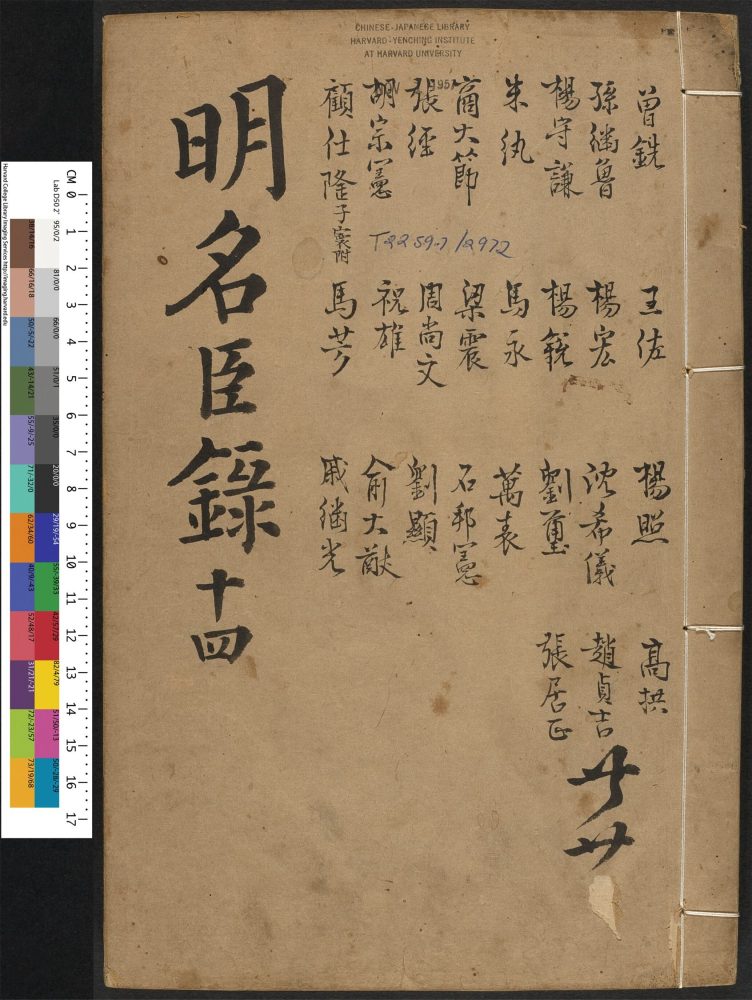 CHINESE-JAPANESE LIBRARY
HARVARD-YENCHING INSTITUTE
AT HARVARD UNIVERSITY
曾銑
孫継魯
楊守謙
朱紈
商大節
張經
胡宗憲
顧仕隆子寰附
王佐
楊宏
楊銳
馬永
梁震
周尚文
祝雄
馬芳
楊照
沈希儀
劉璽
萬表
石邦憲
劉顯
俞大猷
戚継光
高拱
趙貞吉
張居正
T2259.7/2972
明名臣錄十四
CM 0 1 2 3 4 5 6 7 8 9 10 11 12 13 14 15 16 17
Harvard College Library Imaging Services http://imaging.harvard.edu